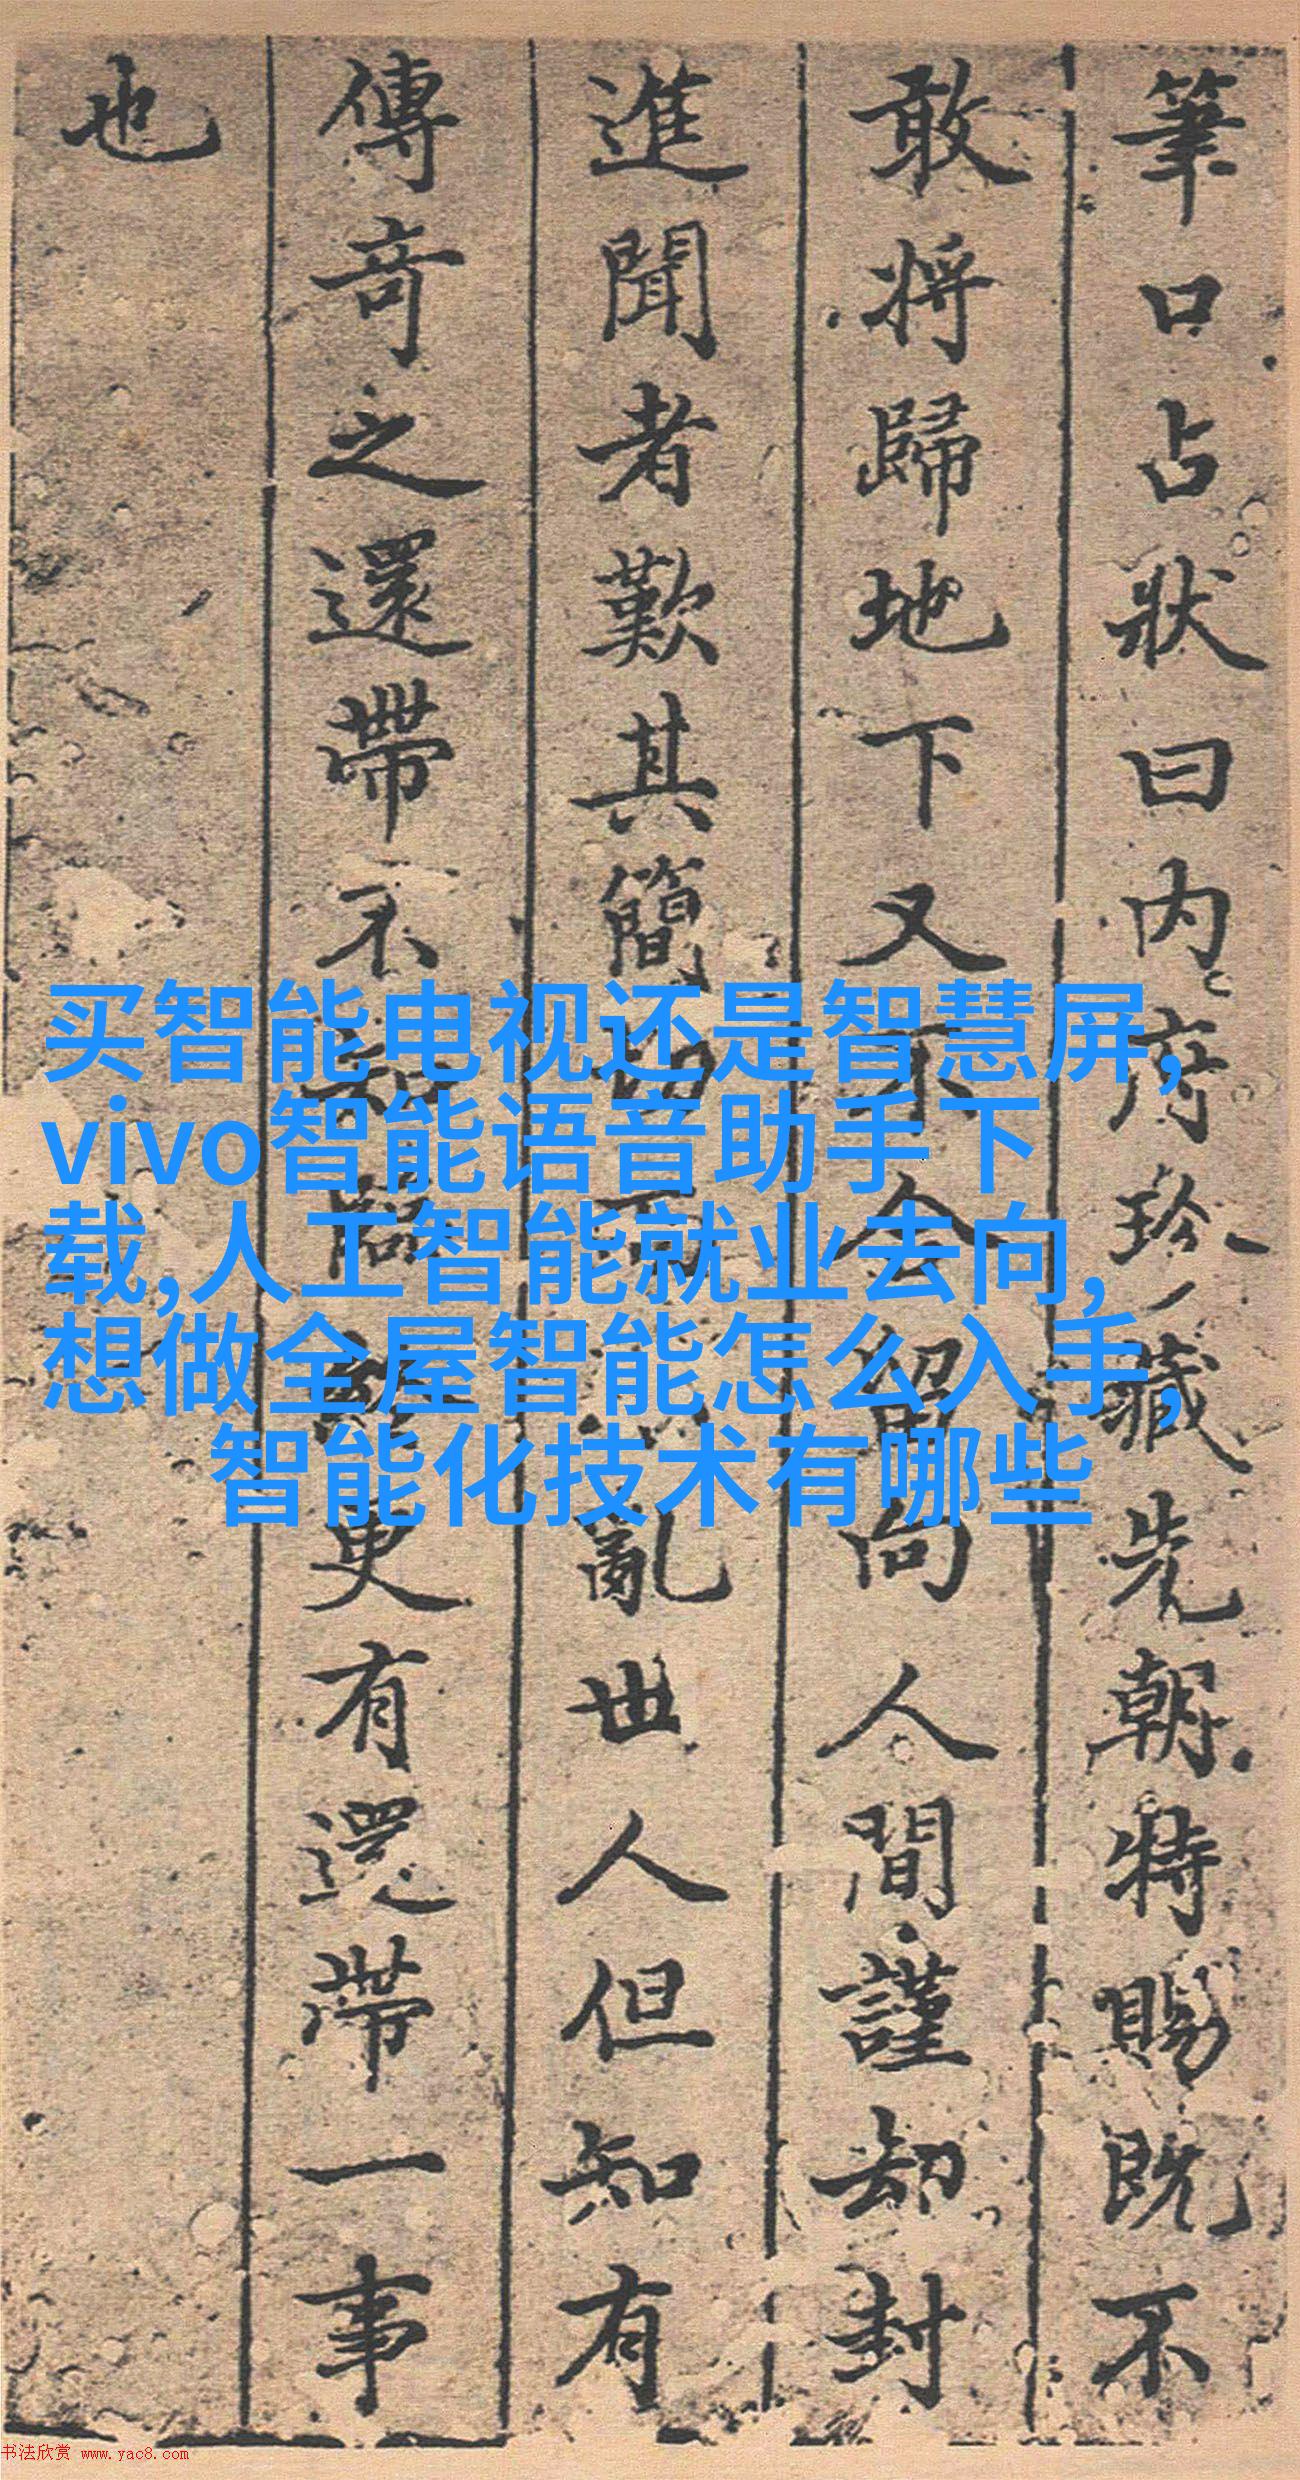 筆口占狀曰内府珍藏先朝特賜既不
敢将歸地下又不令留向人間謹却封
進聞者歎其簡切而 亂世人但知有
傳奇之還帶不知 更有還帶一事
也
买智能电视还是智慧屏,
vivo智能语音助手下
载,人工智能就业去向,
想做全屋智能怎么入手,
智能化技术有哪些
书法欣赏 www.yac8.com